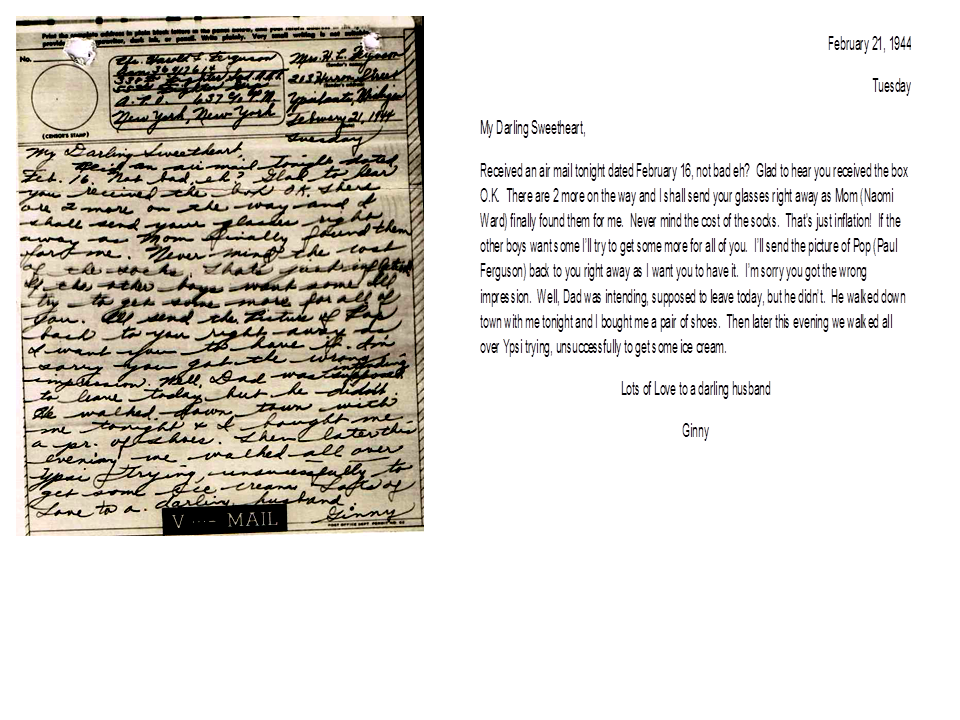 Print the complete address in plain block letters in the panel below, and your return address in the space
provided. Use typewriter, dark ink, or pencil. Write plainly. Very small writing is not suitable.
No.
(CENSOR'S STAMP)
Harold L. Ferguson
A.P.O. 637 % P.M.
New York, New York
Mrs. H. L. Ferguson
(Sender's name)
203 Huron Street
Ypsilanti, Michigan
February 21, 1944
Tuesday
My Darling Sweetheart,
Rec'd an air mail tonight dated
Feb. 16. Not bad, eh? Glad to hear
you received the box O.K. There
are 2 more on the way and I
shall send your glasses right
away as Mom finally found them
for me. Never mind the cost
of the socks. That's just inflation
If the other boys want some I'll
try to get some more for all of
you. I'll send the picture of Pop
back to you right away as
I want you to have it. I'm
sorry you got the wrong
impression. Well, Dad was intending supposed
to leave today but he didn't
He walked down town with
me tonight & I bought me
a pr. of shoes. Then later this
evening we walked all over
Ypsi trying, unsuccessfully to
get some ice cream. Lots of
Love to a darling husband
Ginny
V ···– MAIL
POST OFFICE DEPT. PERMIT NO.
February 21, 1944
Tuesday
My Darling Sweetheart,
Received an air mail tonight dated February 16, not bad eh? Glad to hear you received the box
O.K. There are 2 more on the way and I shall send your glasses right away as Mom (Naomi
Ward) finally found them for me. Never mind the cost of the socks. That's just inflation! If the
other boys want some I'll try to get some more for all of you. I'll send the picture of Pop (Paul
Ferguson) back to you right away as I want you to have it. I'm sorry you got the wrong
impression. Well, Dad was intending, supposed to leave today, but he didn't. He walked down
town with me tonight and I bought me a pair of shoes. Then later this evening we walked all
over Ypsi trying, unsuccessfully to get some ice cream.
Lots of Love to a darling husband
Ginny